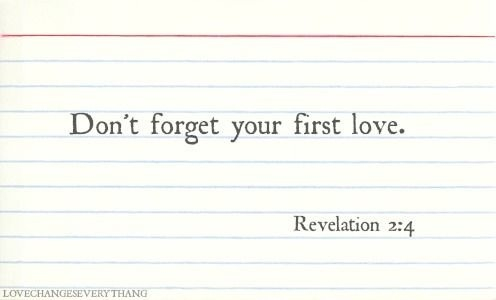 Don't forget your first love.
Revelation 2:4
LOVECHANGESEVERYTHANG